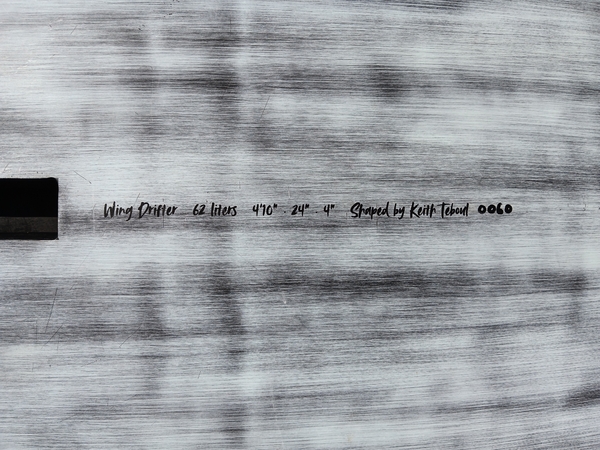 Wing Drifter 62 liters 4'10" . 24" . 4" Shaped by Keith Teboul 0060